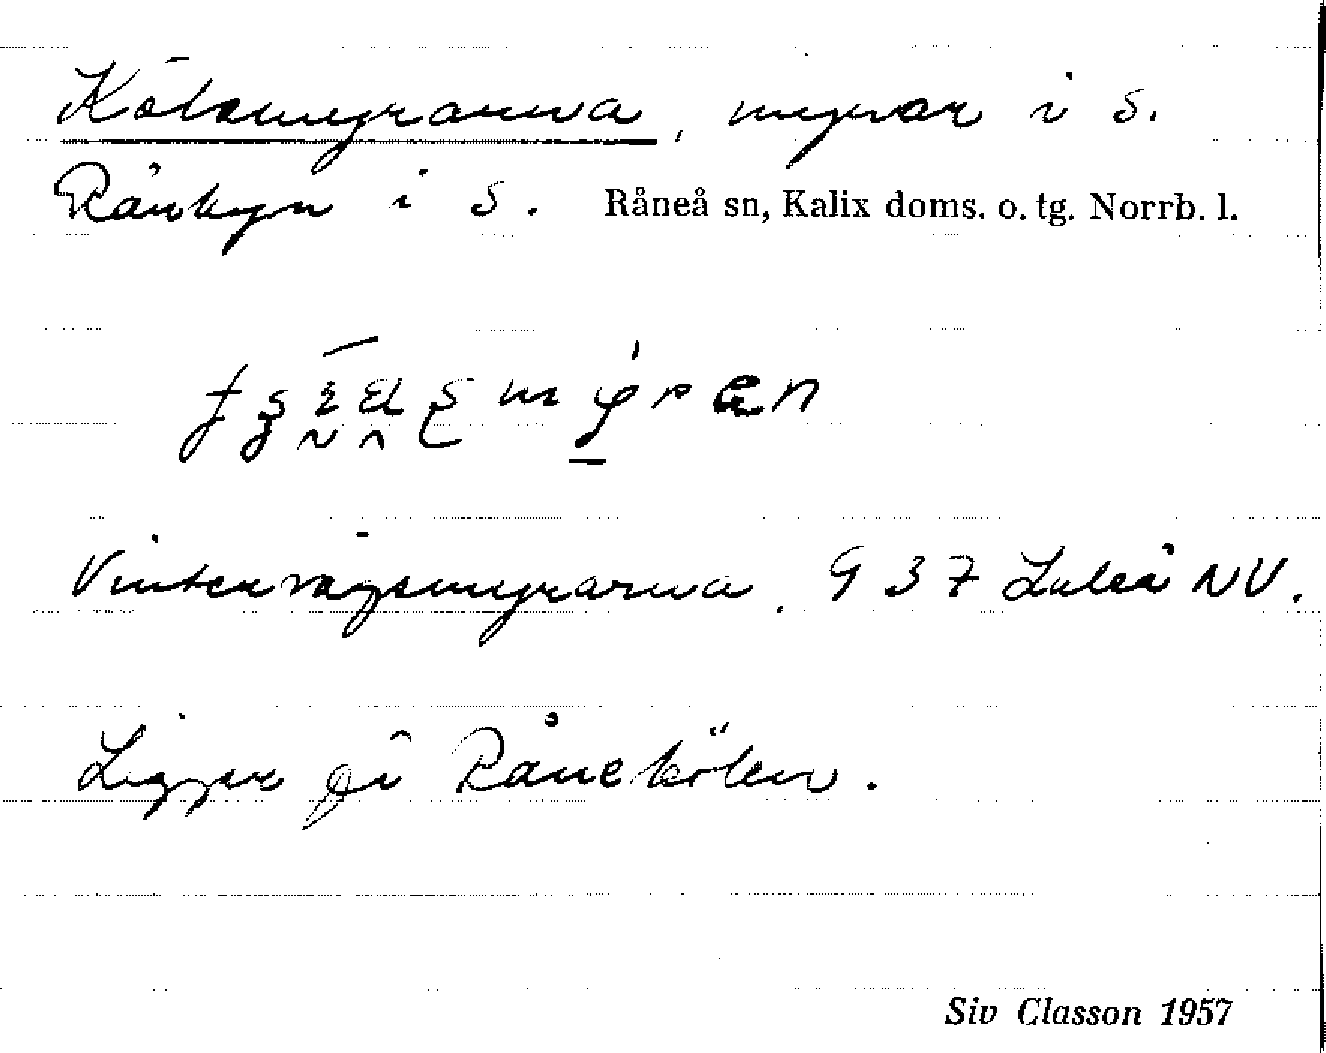 Kölsmyrarna, myrar i S.
Rånbyn i S. Råneå sn, Kalix doms. o. tg. Norrb. l.
Vintervägsmyrarna. 9 37 Luleå NV.
Ligger på Rånekölen.
Siv Classon 1957